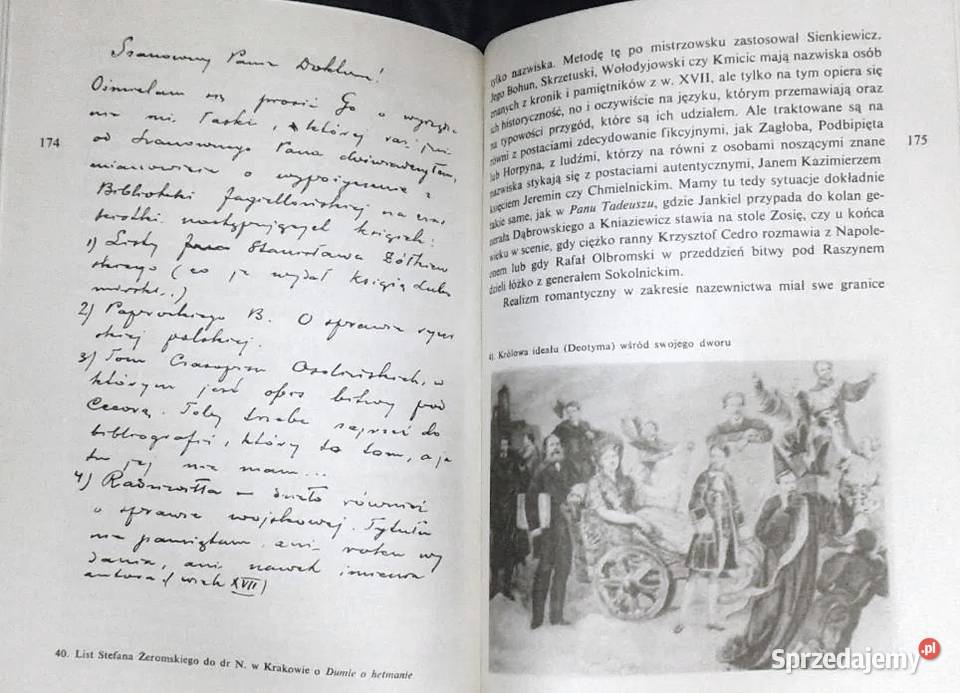 Szanowny Panie Doktorze!
Ośmielam się prosić Go o wyrządze-
nie mi łaski, której raz już
od Szanownego Pana doświadczyłem,
mianowicie o wypożyczenie z
Biblioteki Jagiellońskiej na czas
krótki następujących książek:
1) Listy Jana Stanisława Żółkiew-
skiego (co je wydał książę Lubo-
mirski..)
2) Paprockiego B. O sprawie ryce-
skiej polskiej.
3) Tom Czasopism Ossolińskich, w
którym jest opis bitwy pod
Cecorą. Toby trzeba zajrzeć do
bibliografii, który to tom, a ja
tu jej nie mam...
4) Radziwiłła — dzieło również
o sprawie wojskowej. Tytułu
nie pamiętam, ani roku wy-
dania, ani nawet imienia
autora (wiek XVII)
174
40. List Stefana Żeromskiego do dr N. w Krakowie o Dumie o hetmanie
tylko nazwiska. Metodę tę po mistrzowsku zastosował Sienkiewicz.
Jego Bohun, Skrzetuski, Wołodyjowski czy Kmicic mają nazwiska osób
znanych z kronik i pamiętników z w. XVII, ale tylko na tym opiera się
ich historyczność, no i oczywiście na języku, którym przemawiają oraz
na typowości przygód, które są ich udziałem. Ale traktowane są na
równi z postaciami zdecydowanie fikcyjnymi, jak Zagłoba, Podbipięta
lub Horpyna, z ludźmi, którzy na równi z osobami noszącymi znane
nazwiska stykają się z postaciami autentycznymi, Janem Kazimierzem
księciem Jeremin czy Chmielnickim. Mamy tu tedy sytuacje dokładnie
takie same, jak w Panu Tadeuszu, gdzie Jankiel przypada do kolan ge-
nerała Dąbrowskiego a Kniaziewicz stawia na stole Zosię, czy u końca
wieku w scenie, gdy ciężko ranny Krzysztof Cedro rozmawia z Napole-
onem lub gdy Rafał Olbromski w przeddzień bitwy pod Raszynem
dzieli łóżko z generałem Sokolnickim.
Realizm romantyczny w zakresie nazewnictwa miał swe granice
175
41. Królowa ideału (Deotyma) wśród swojego dworu
Sprzedajemy.pl